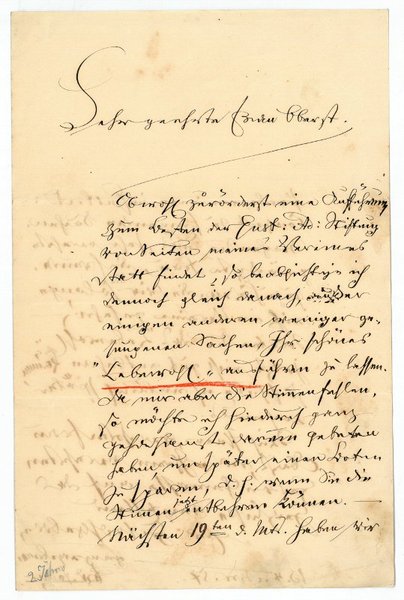 Sehr geehrte Frau Oberst.
Obwohl zuvörderst eine Aufführung
zum Besten der Gust: Ad: Stiftung
von Seiten meines Vereines
statt findet, so beabsichtige ich
dennoch gleich danach, außer
einigen anderen weniger ge-
sungenen Sachen, Ihr schönes
"Lebewohl" aufführen zu lassen.
Da mir aber die Stimmen fehlen,
so möchte ich hiedurch ganz
gehorsamst darum gebeten
haben um später einen Boten
zu sparen, d. h. wenn Sie die
Stimmen jetzt entbehren können.
Nächsten 19ten d. Mts. haben wir
2 Jahre